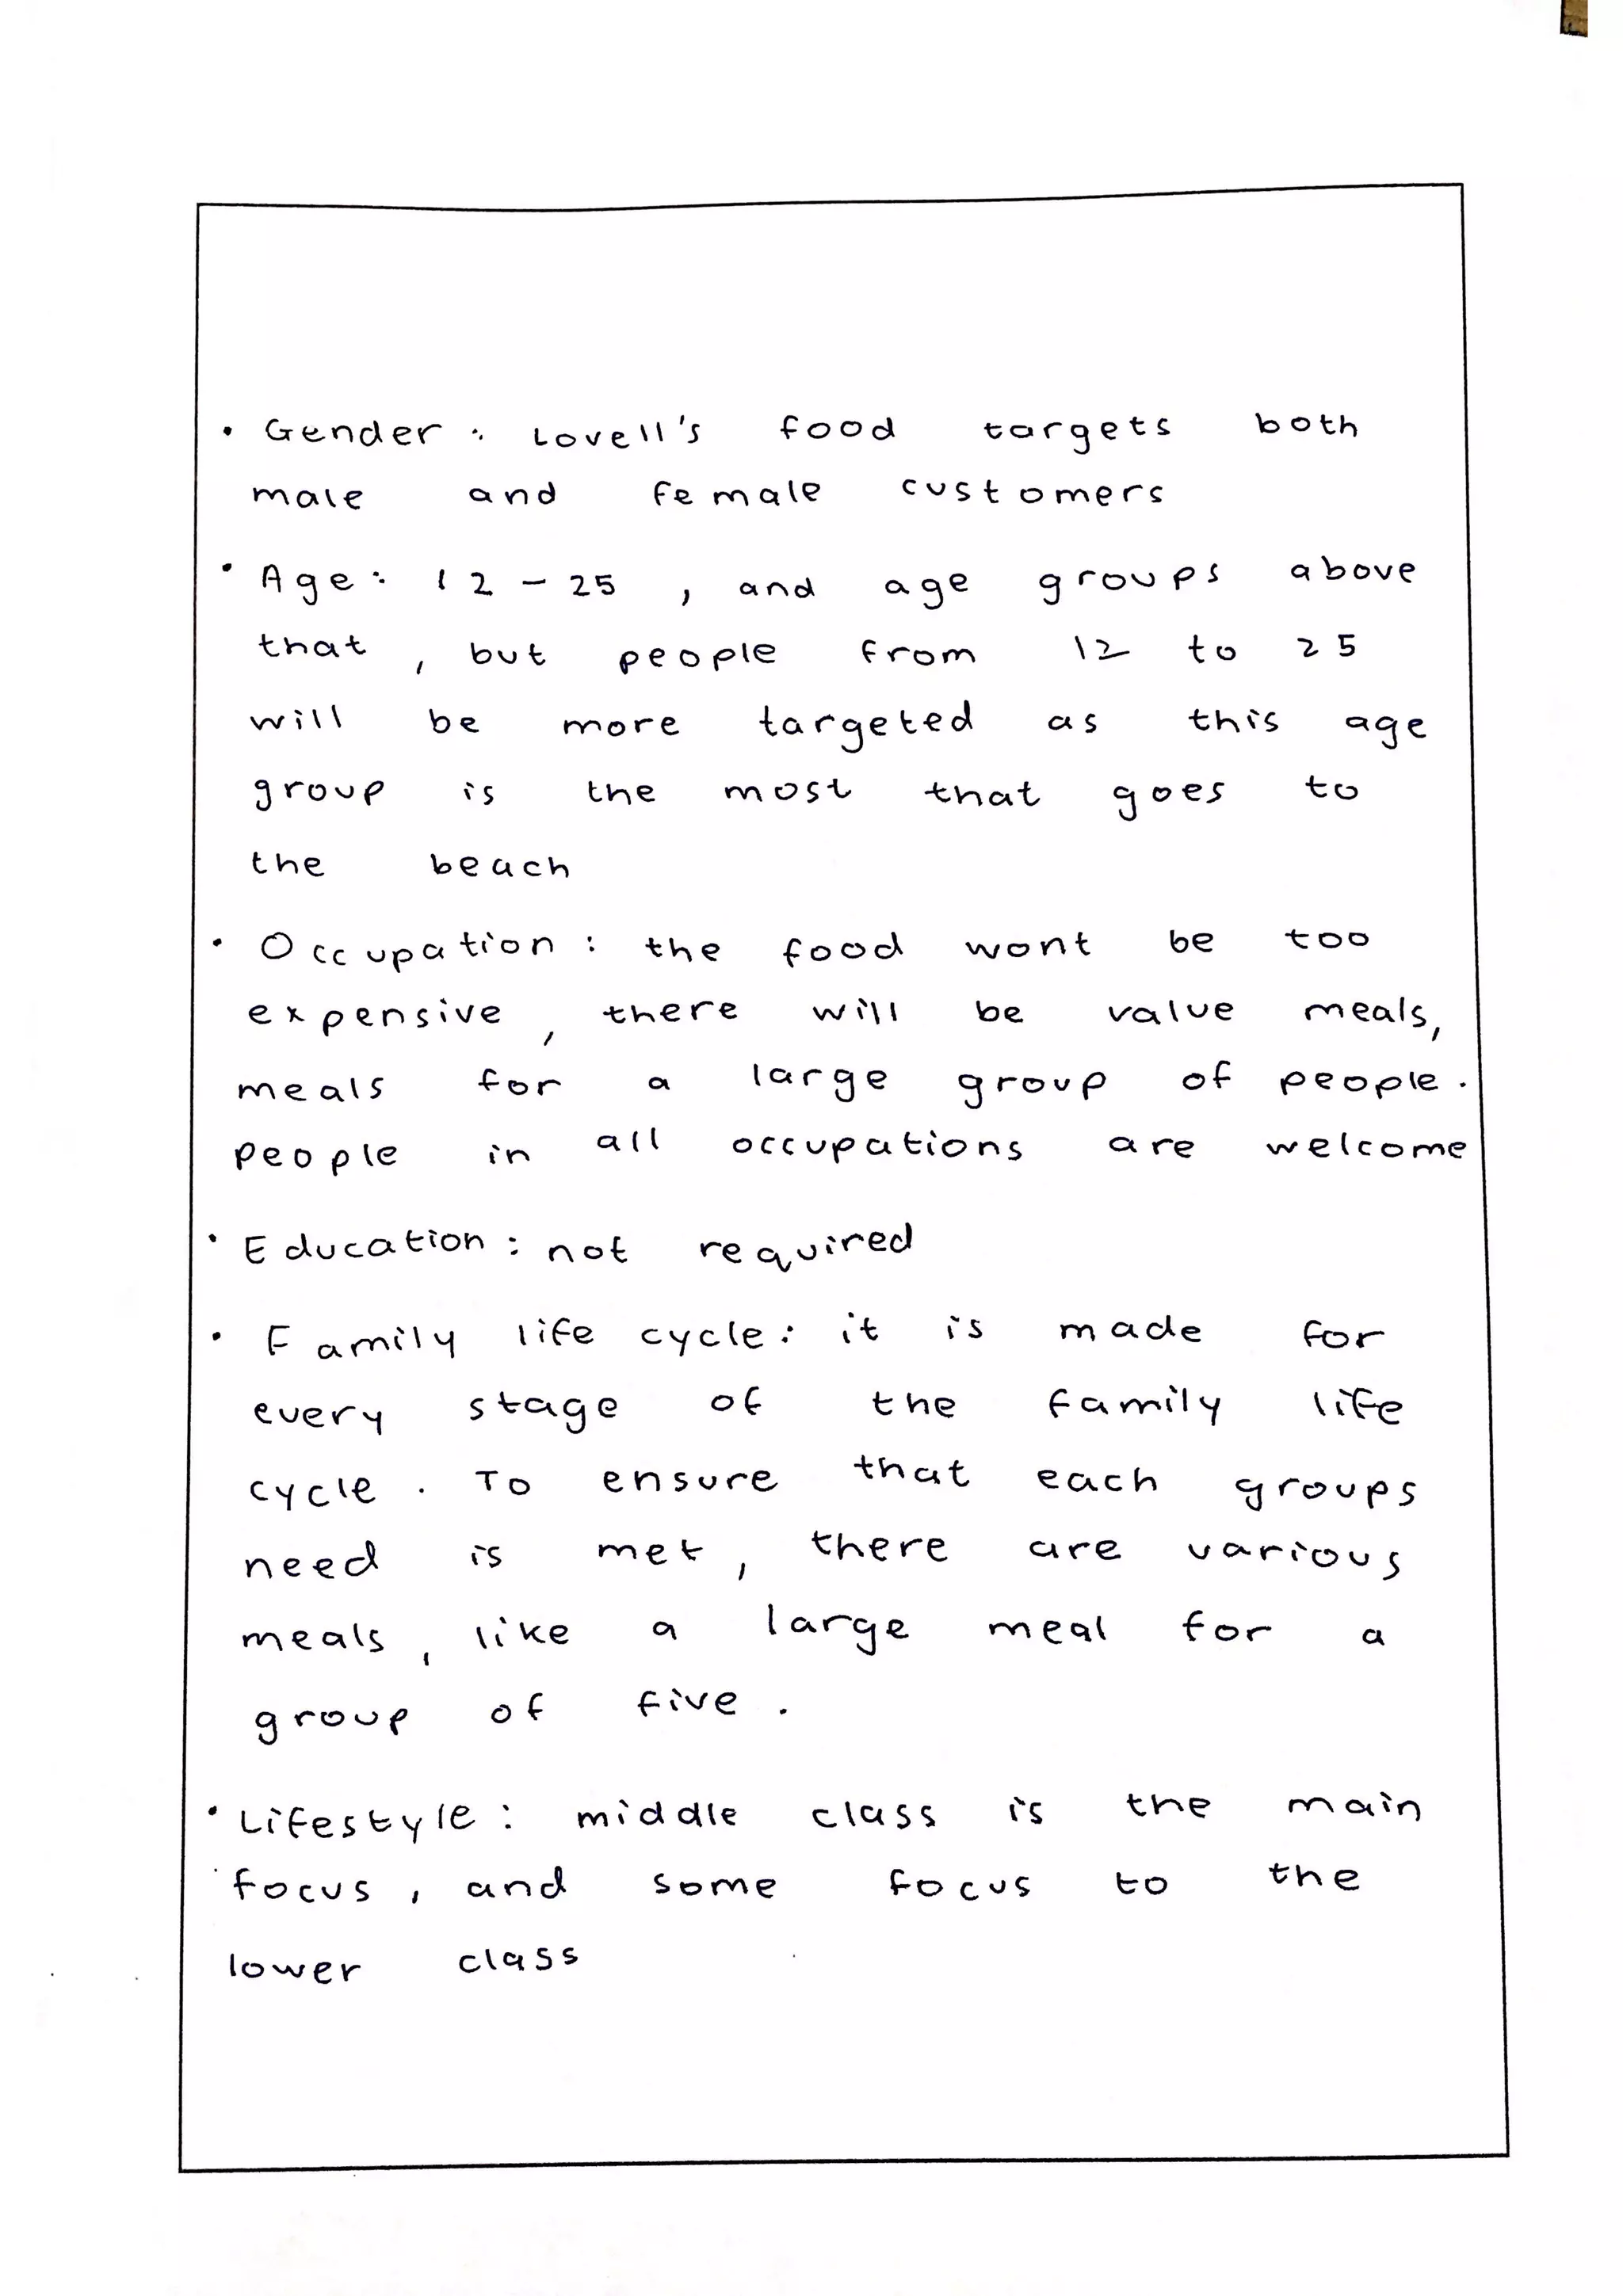 • Gender : Lovell's food targets both
male and female customers
• Age : 12 - 25 , and age groups above
that , but people from 12 to 25
will be more targeted as this age
group is the most that goes to
the beach
• Occupation : the food wont be too
expensive , there will be value meals,
meals for a large group of people .
people in all occupations are welcome
• Education : not required
• Family life cycle : it is made for
every stage of the family life
cycle . To ensure that each groups
need is met , there are various
meals , like a large meal for a
group of five .
• Lifestyle : middle class is the main
focus , and some focus to the
lower class